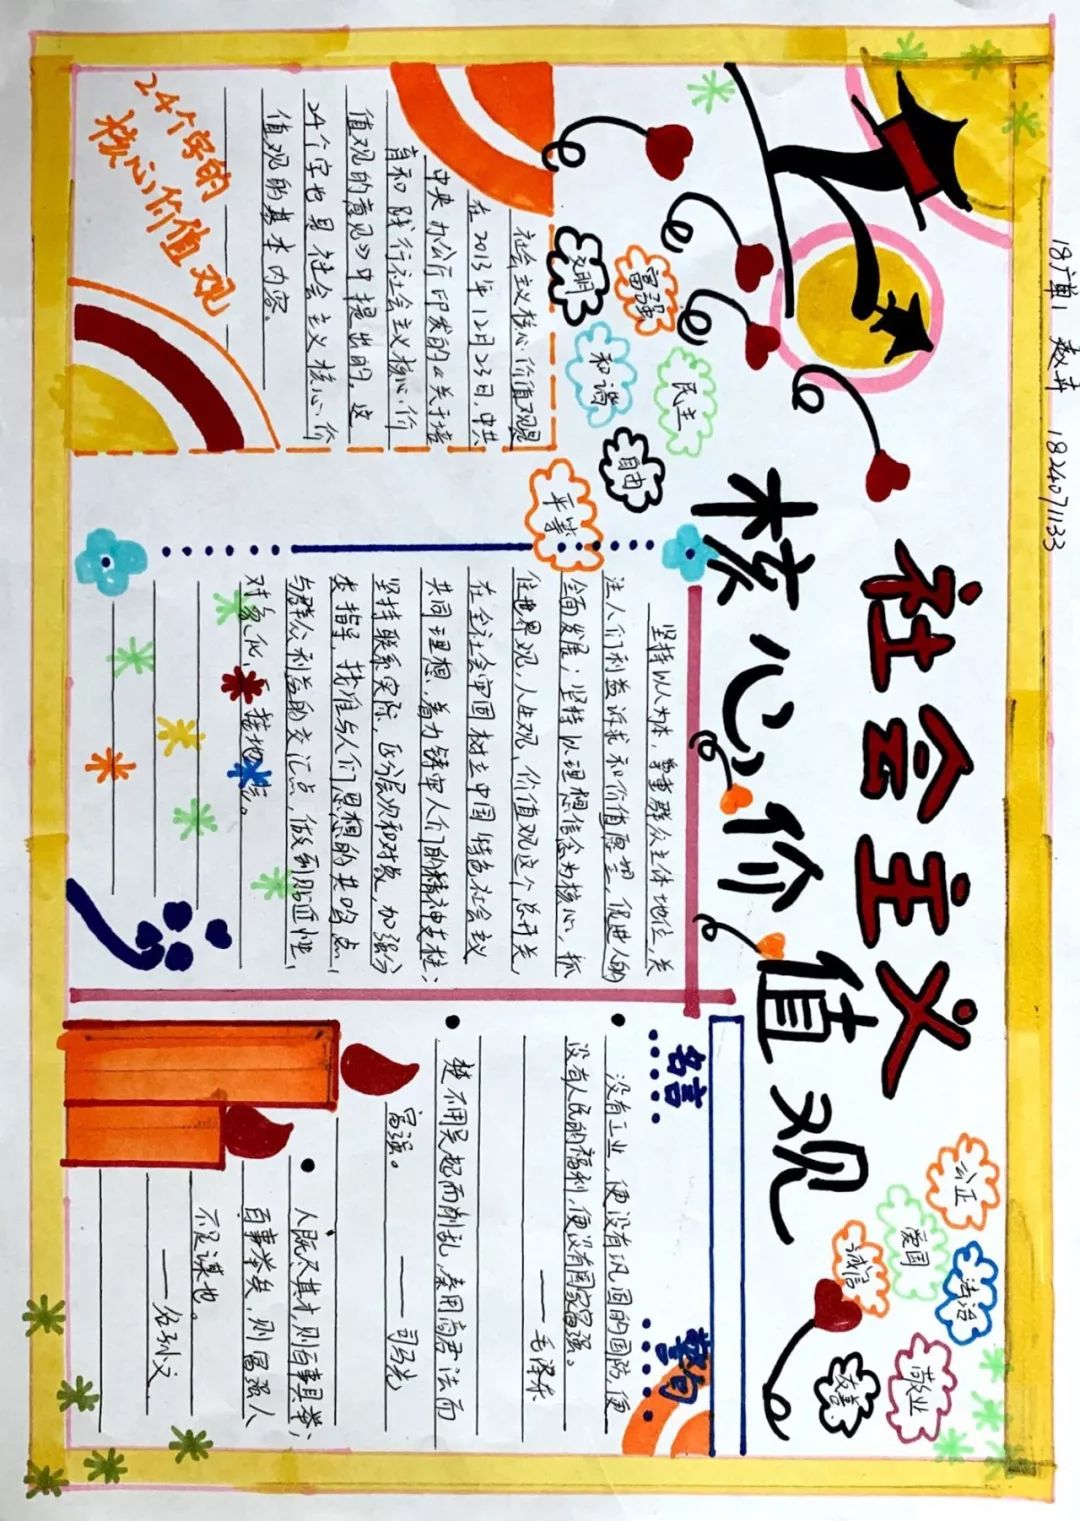 18广单1 赵卉 1824071133
社会主义
核心价值观
文明
富强
和谐
民主
自由
平等
公正
爱国
诚信
法治
敬业
友善
社会主义核心价值观是
在2013年12月23日,中共
中央办公厅印发的《关于培
育和践行社会主义核心价
值观的意见》中提出的。这
24个字也是社会主义核心价
值观的基本内容。
24个字的
核心价值观
坚持以人为本,尊重群众主体地位,关
注人们利益诉求和价值愿望,促进人的
全面发展;坚持以理想信念为核心,抓
住世界观,人生观,价值观这个总开关,
在全社会牢固树立中国特色社会主义
共同理想,着力铸牢人们的精神支柱;
坚持联系实际,区分层次和对象,加强分
类指导,找准与人们思想的共鸣点,
与群众利益的交汇点,做到贴近性,
对象化,接地气。
名言
警句
没有工业,便没有巩固的国防,便
没有人民的福利,便没有国家富强。
——毛泽东
楚不用吴起而削乱,秦用商君法而
富强。
——司马光
人既尽其才,则百事具举;
百事举矣,则富强人
不足谋也。